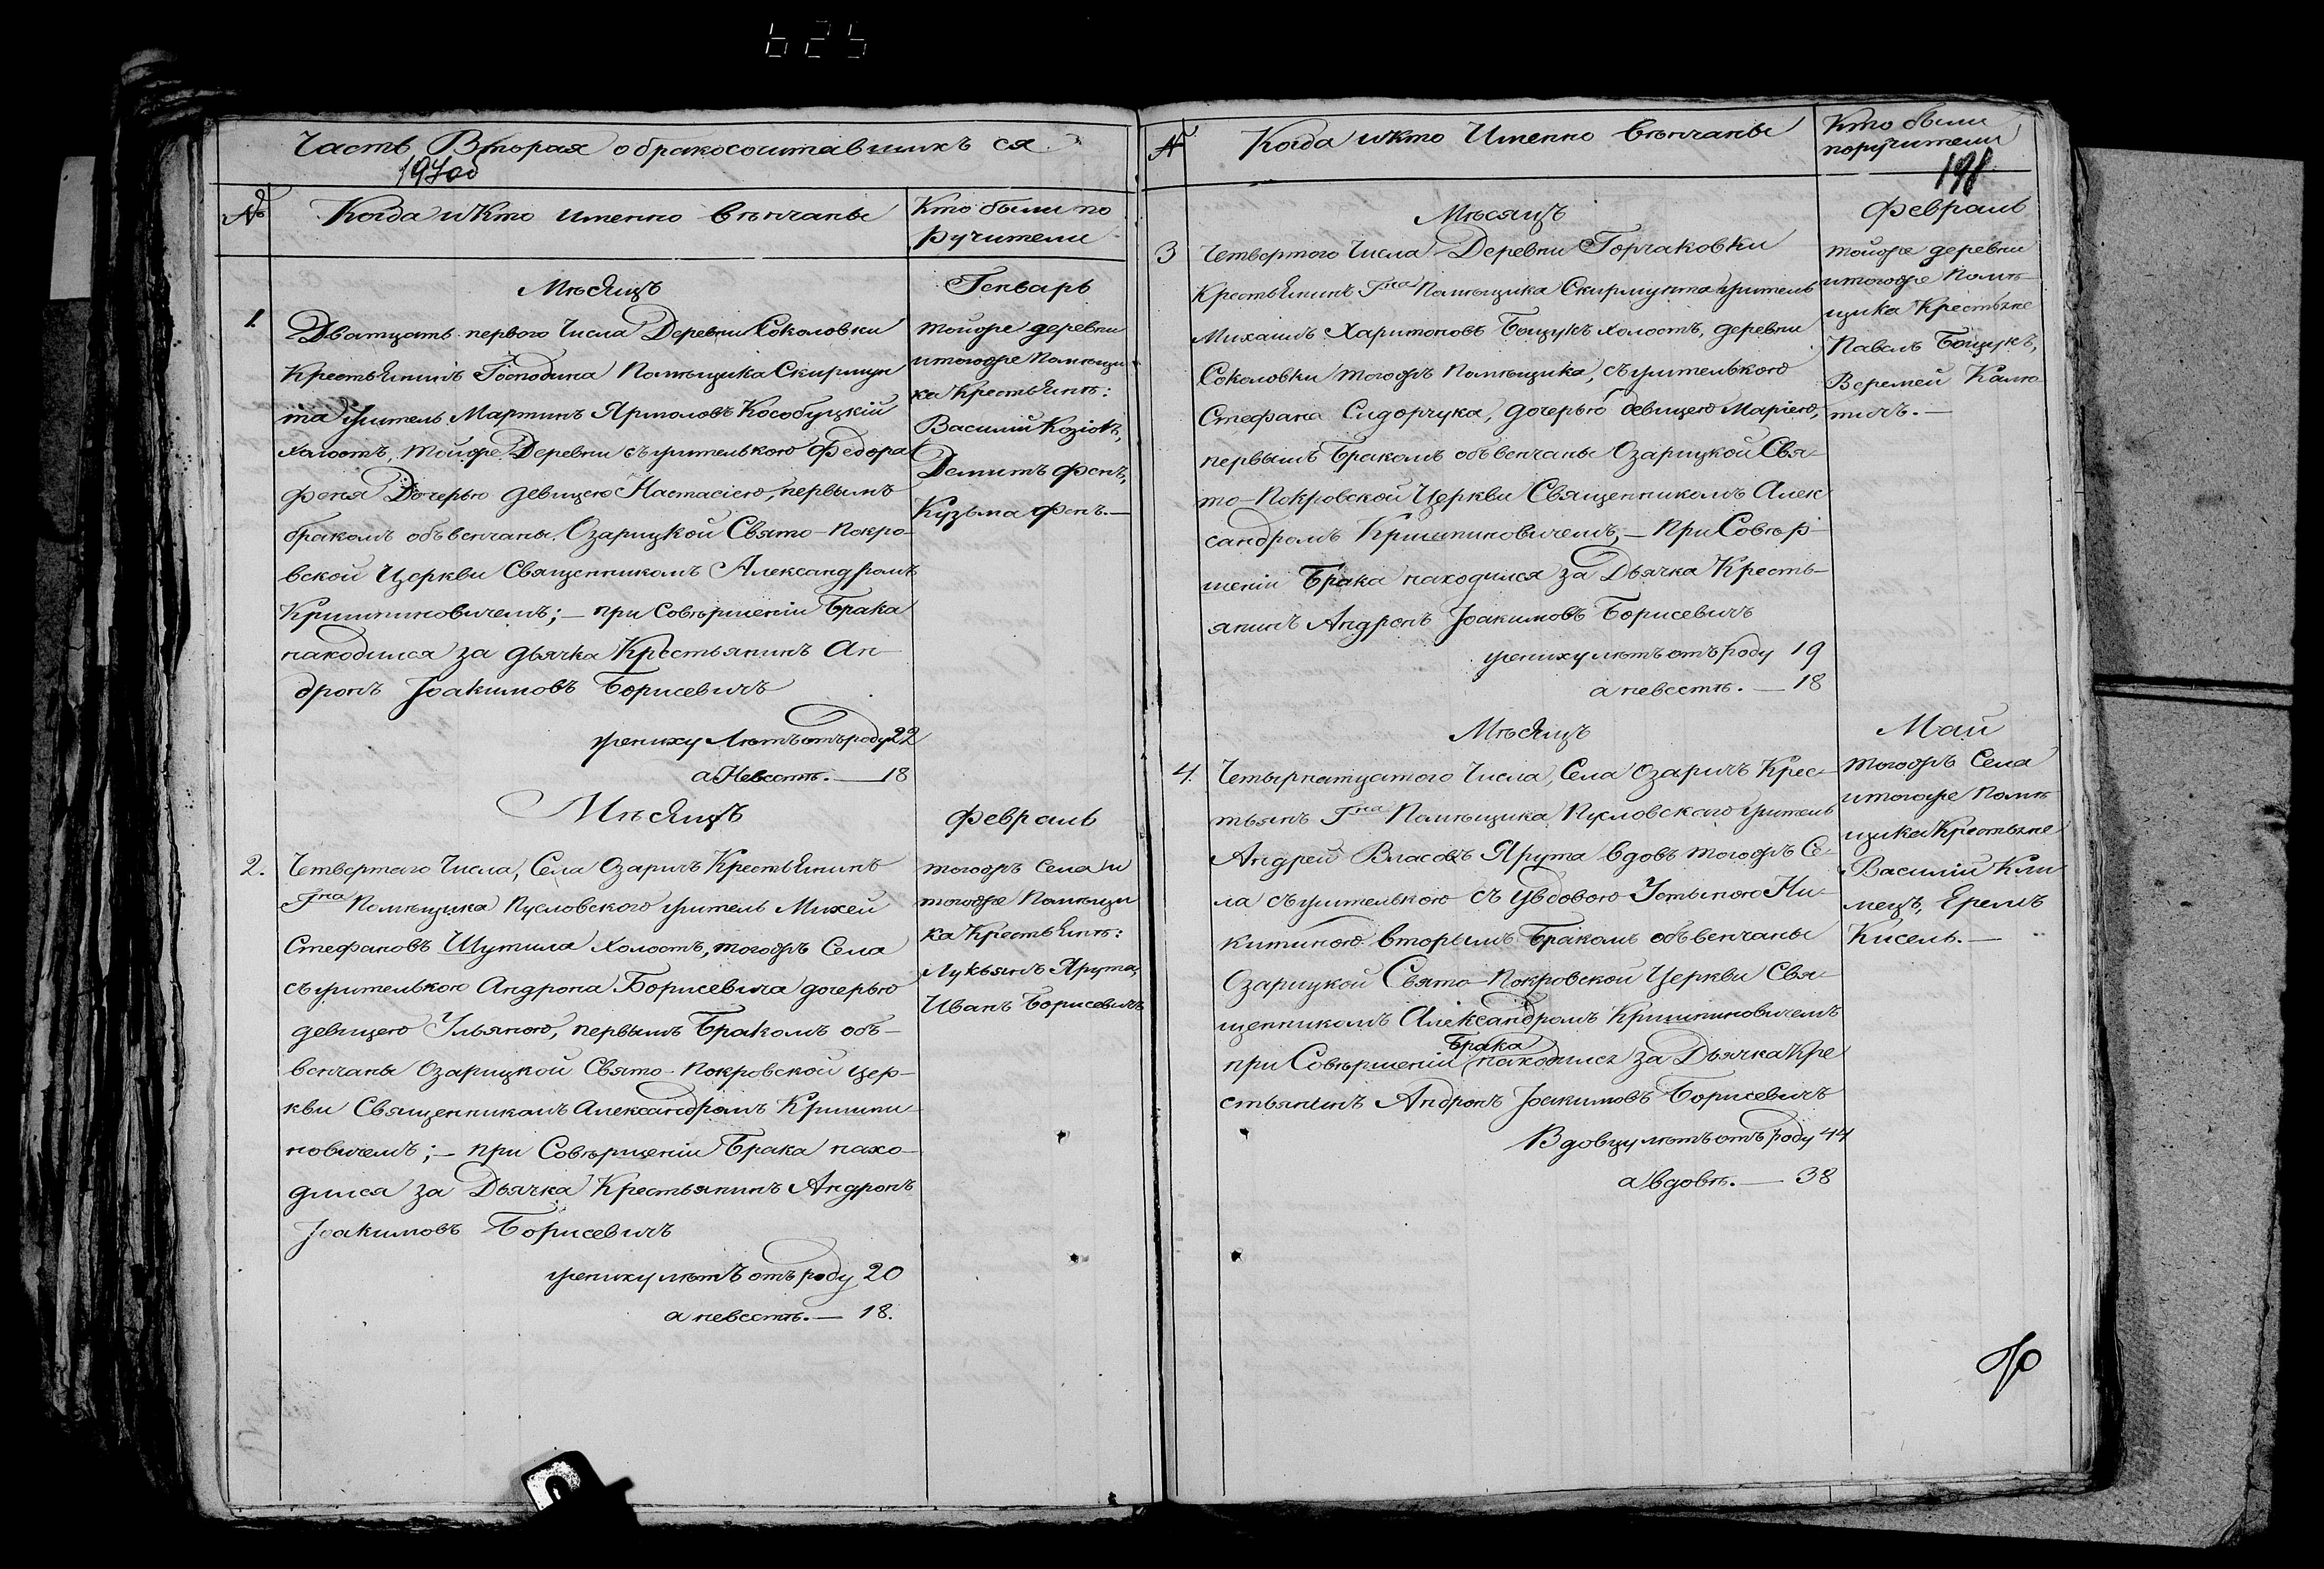 625
Часть Вторая о бракосочитавшихъ ся
197об
№
Когда и кто именно венчаны
Кто были по
ручители
Мѣсяцъ
Генварь
1.
Дватцать первого Числа Деревни Соколовки
Крестьянинъ Господина Помѣщика Скирмун
та житель Мартинъ Ярмоловъ Кособуцкій
холостъ, тойже Деревни съ жителькою Федора
Феня Дочерью девицею Настасіею, первымъ
бракомъ объвенчаны Озарицкой Свято-Покро-
вской Церкви Священникомъ Александромъ
Кришпиновичемъ; — при Совѣршеніи Брака
находился за дьячка Крестьянинъ Ан-
дронъ Іоакимовъ Борисевичъ
жениху Лѣтъ отъ роду 22
а Невестѣ. — 18
тойже деревни
и тогоже Помѣщи-
ка Крестьянѣ:
Василій Козіовъ,
Демитъ Фенъ,
Кузьма Фенъ. —
Мѣсяцъ
Февраль
2.
Четвертаго Числа, Села Озаричъ Крестьянинъ
Гна Помѣщика Пусловского житель Михей
Стефановъ Шутила Холостъ, тогожъ Села
съ жителькою Андрона Борисевича дочерью
девицею Ульяною, первымъ Бракомъ объ-
венчаны Озарицкой Свято-Покровской цер-
кви Священникомъ Александромъ Кришпи-
новичемъ; — при Совѣршеніи Брака нахо-
дился за Дьячка Крестьянинъ Андронъ
Іоакимовъ Борисевичъ
жениху лѣтъ отъ роду 20
а невестѣ. — 18.
тогожъ Села и
тогоже Помѣщи
ка Крестьянѣ:
Лукьянъ Ярута,
Иванъ Борисевичъ
№
Когда и кто Именно венчаны
Кто были
поручители
198
Мѣсяцъ
Февраль
3
Четвертого Числа Деревни Горчаковки
Крестьянинъ Гна Помѣщика Скирмунта житель
Михаилъ Харитоновъ Боцукъ холостъ, деревни
Соколовки тогожъ Помѣщика, съ жителькою
Стефана Сидорчука, дочерью девицею Маріею,
первымъ Бракомъ объвенчаны Озарицкой Свя-
то-Покровской Церкви Священникомъ Алек
сандромъ Кришпиновичемъ; — При Совѣр-
шеніи Брака находился за Дьячка Кресть-
янинъ Андронъ Іоакимовъ Борисевичъ
жениху лѣтъ отъ роду 19
а невестѣ. — 18
тойже деревни
и тогоже Помѣ-
щика Крестьяне
Павелъ Боцукъ,
Веремей
Мѣсяцъ
Май
4.
Четырнатцатого Числа, Села Озаричъ Крес-
тьянъ Гна Помѣщика Пусловскаго житель
Андрей Власовъ Ярута вдовъ тогожъ Се-
ла съ жителькою съ уѣдовою Устьиною Ни-
китиною вторымъ Бракомъ объвенчаны
Озарицкой Свято-Покровской Церкви Свя-
щенникомъ Александромъ Кришпиновичемъ
при Совѣршеніи Брака находился за Дьячка Кре
стьянинъ Андронъ Іоакимовъ Борисевичъ
Вдовцу лѣтъ отъ роду 44
а вдовѣ. — 38
тогожъ Села
и тогоже Помѣ
щика Крестьяне
Василій Кли
мецъ, Еремъ
Кисель. —